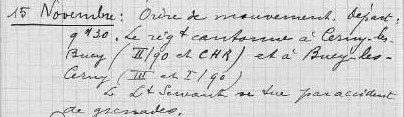 15 Novembre : Ordre de mouvement. Départ :
9h30. Le régt cantonne à Cerny-les-
Bucy (II/90 et CHR) et à Bucy-les-
Cerny (III et I/90)
Le Lt Servant se tue par accident
de grenades.